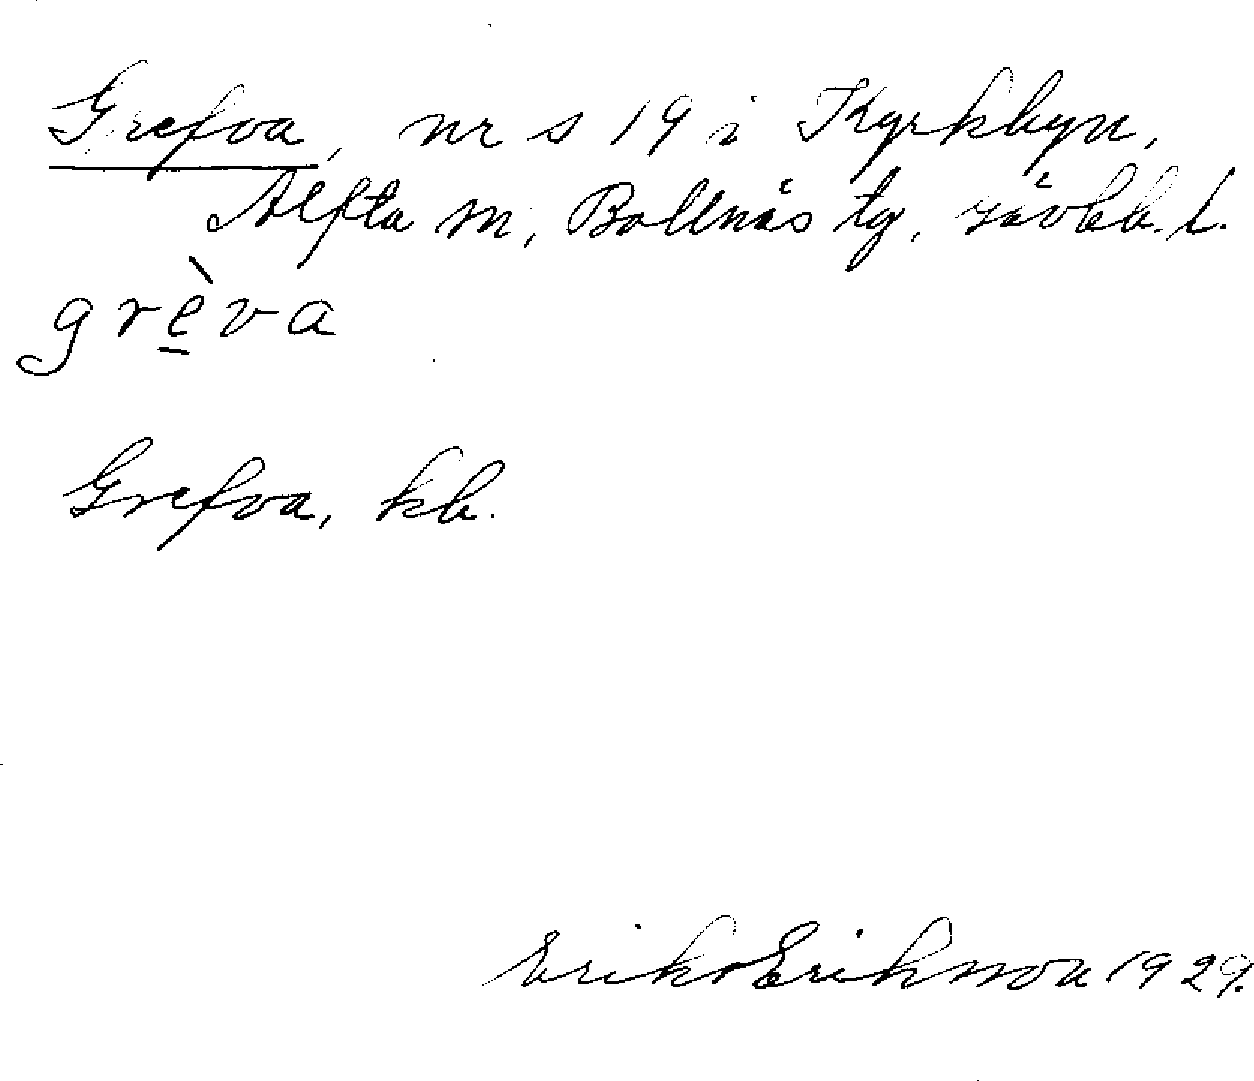 Grefva, nr s 19 i Kyrkbyn,
Alfta sn, Bollnäs tg, Gävleb. l.
grèva
Grefva, kb.
Eriks Eriksson 1929.